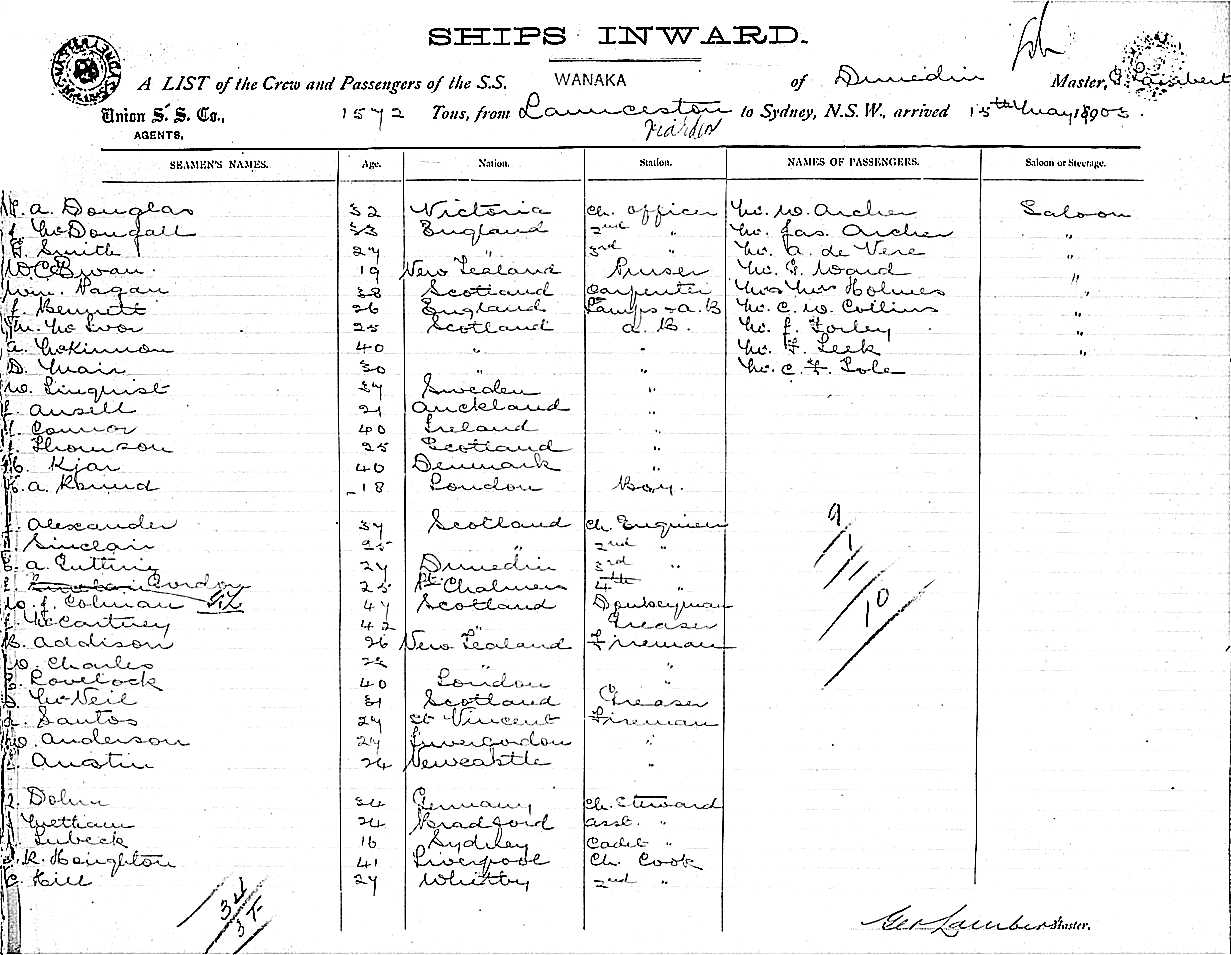 SHIPS INWARD.
A LIST of the Crew and Passengers of the S.S. WANAKA of Dunedin Master, G Lambert
Union S. S. Co., 1572 Tons, from Launceston to Sydney, N.S.W., arrived 15th May 1903.
AGENTS,
SEAMEN'S NAMES. Age. Nation. Station. NAMES OF PASSENGERS. Saloon or Steerage.
A. Douglas 32 Victoria Ch. Officer Mr. W. Archer Saloon
McDougall 33 England 2nd " Mr. Jas. Archer "
Smith 27 " 3rd " Mr. A. de Vere "
19 New Zealand Purser Mr. G. Ward "
Wm. Pagan 38 Scotland Carpenter Mrs Holmes "
J. Bennett 26 England Lamps & A.B Mr. C. W. Collins "
25 Scotland A. B. Mr. J. "
A. McKinnon 40 " " Mr. F. Leek "
D. Muir 30 " " Mr. C. F. Sole
W. Linquist 37 Sweden "
Ansell 21 Auckland "
Connor 40 Ireland "
Thomson 25 Scotland "
Kjar 40 Denmark "
A. 18 London Boy.
Alexander 37 Scotland Ch. Engineer
Sinclair 25 " 2nd "
A. Cutting 27 Dunedin 3rd "
Gordon 25 Pt. Chalmers 4th "
W. J. Colman 47 Scotland Donkeyman
McCartney 42 " Greaser
Addison 26 New Zealand Fireman
Charles " "
Lovelock 40 London "
McNeil 31 Scotland Greaser
Santos 27 St Vincent Fireman
Anderson 27 Invergordon "
Austin 24 Newcastle "
Dohrn 34 Germany Ch. Steward
Metham 24 Bradford Asst. "
Lubeck 16 Sydney Cadet "
R. Heighton 41 Liverpool Ch. Cook
C. Hill 27 Whitby 2nd "
9
1
10
34
Geo Lambert Master.